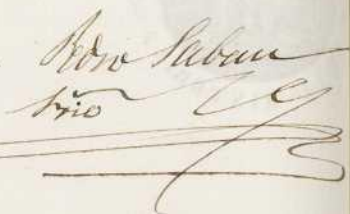 Pedro Sabau
Srio